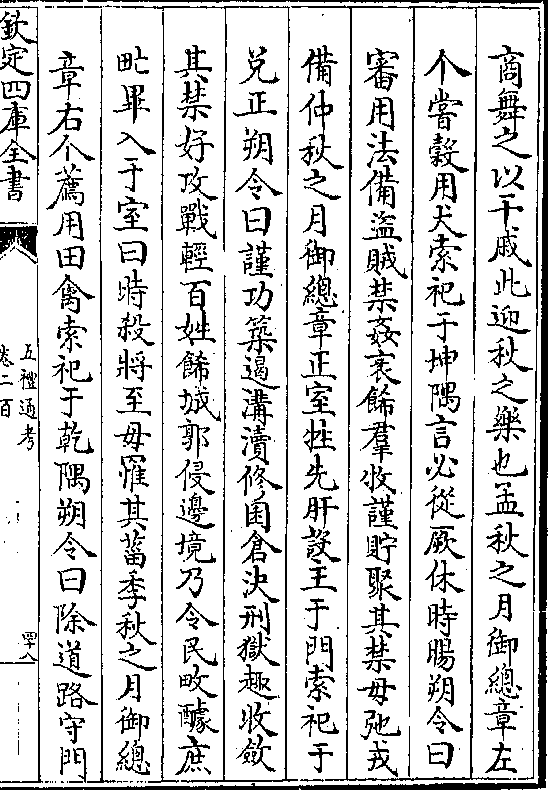 商舞之以干戚此迎秋之樂也孟秋之月御總章左
个嘗穀用犬索祀于坤隅言必從厥休時暘朔令曰
審用法備盜賊禁姦衺餙羣牧謹貯聚其禁毋弛戎
備仲秋之月御總章正室牲先肝設主于門索祀于
兌正朔令曰謹功築遏溝瀆修囷倉決刑獄趣收斂
其禁好攻戰輕百姓餙城郭侵邊境乃令民畋醵庶
甿畢入于室曰時殺將至毋罹其菑季秋之月御總
章右个薦用田禽索祀于乾隅朔令曰除道路守門
欽定四庫全書
五禮通考
卷二百
四十八